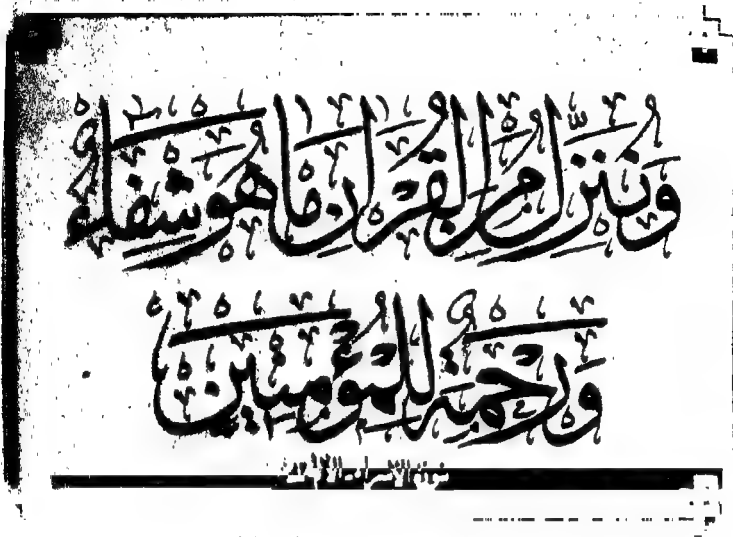 وَنُنَزِّلُ مِنَ الْقُرْآنِ مَا هُوَ شِفَاءٌ
وَرَحْمَةٌ لِلْمُؤْمِنِينَ
سورة الإسراء الآية